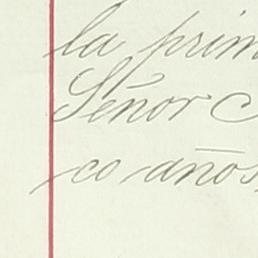 la prim
Señor
co años